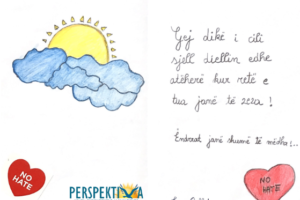 Gej dikë i cili
sjell diellin edhe
atëherë kur retë e
tua janë të zeza!
Ëndrrat janë shumë të mëdha!..
NO
HATE
PERSPEKTIVA
NO
HATE